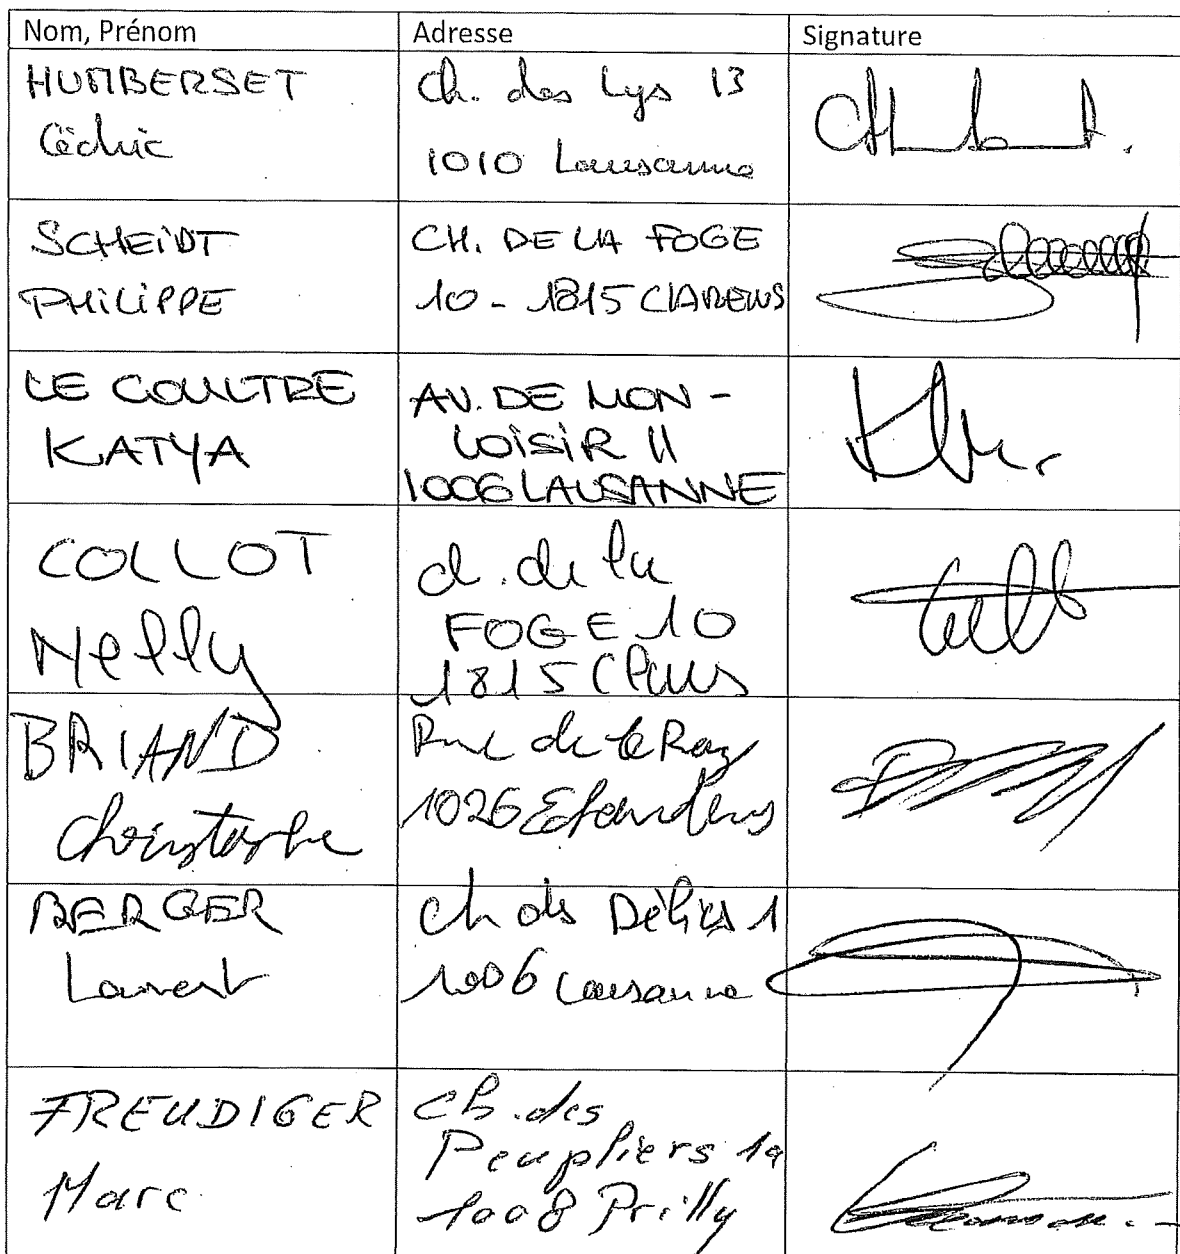 Nom, Prénom
Adresse
Signature
HUMBERSET
Cédric
Ch. des Lys 13
1010 Lausanne
SCHEIDT
PHILIPPE
CH. DE LA FOGE
10 - 1815 CLARENS
LE COULTRE
KATYA
AV. DE MON-
LOISIR 11
1006 LAUSANNE
COLLOT
Nelly
ch. de la
FOGE 10
1815
BRIAND
Christophe
Rue de la
1026 Echandens
BERGER
Laurent
Ch des Délices 1
1006 Lausanne
FREUDIGER
Marc
Ch. des
Peupliers 1a
1008 Prilly